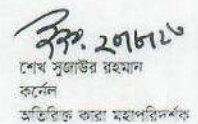 ২৭/৮/২০
শেখ সুজাউর রহমান
কর্নেল
অতিরিক্ত কারা মহাপরিদর্শক